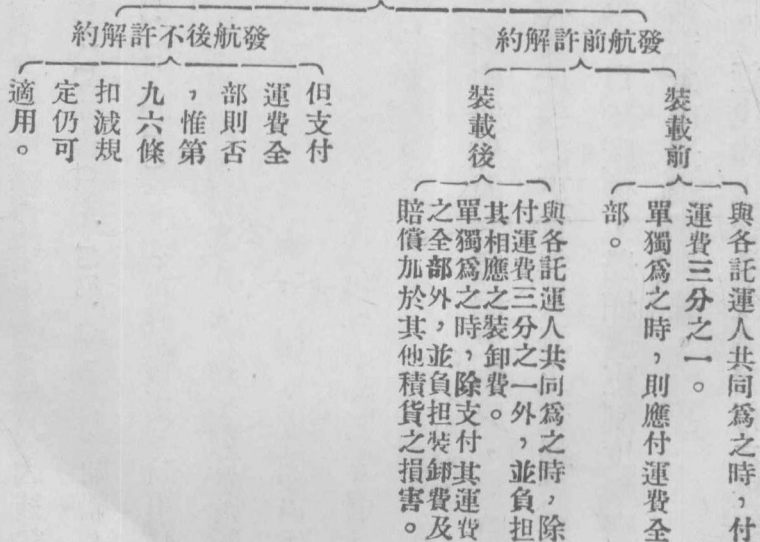 發航前許解約
裝載前
與各託運人共同爲之時，付
運費三分之一。
單獨爲之時，則應付運費全
部。
裝載後
與各託運人共同爲之時，除
付運費三分之一外，並負担
其相應之裝卸費。
單獨爲之時，除支付其運費
之全部外，並負担裝卸費及
賠償加於其他積貨之損害。
發航後不許解約
但支付
運費全
部則否
，惟第
九六條
扣减規
定仍可
適用。